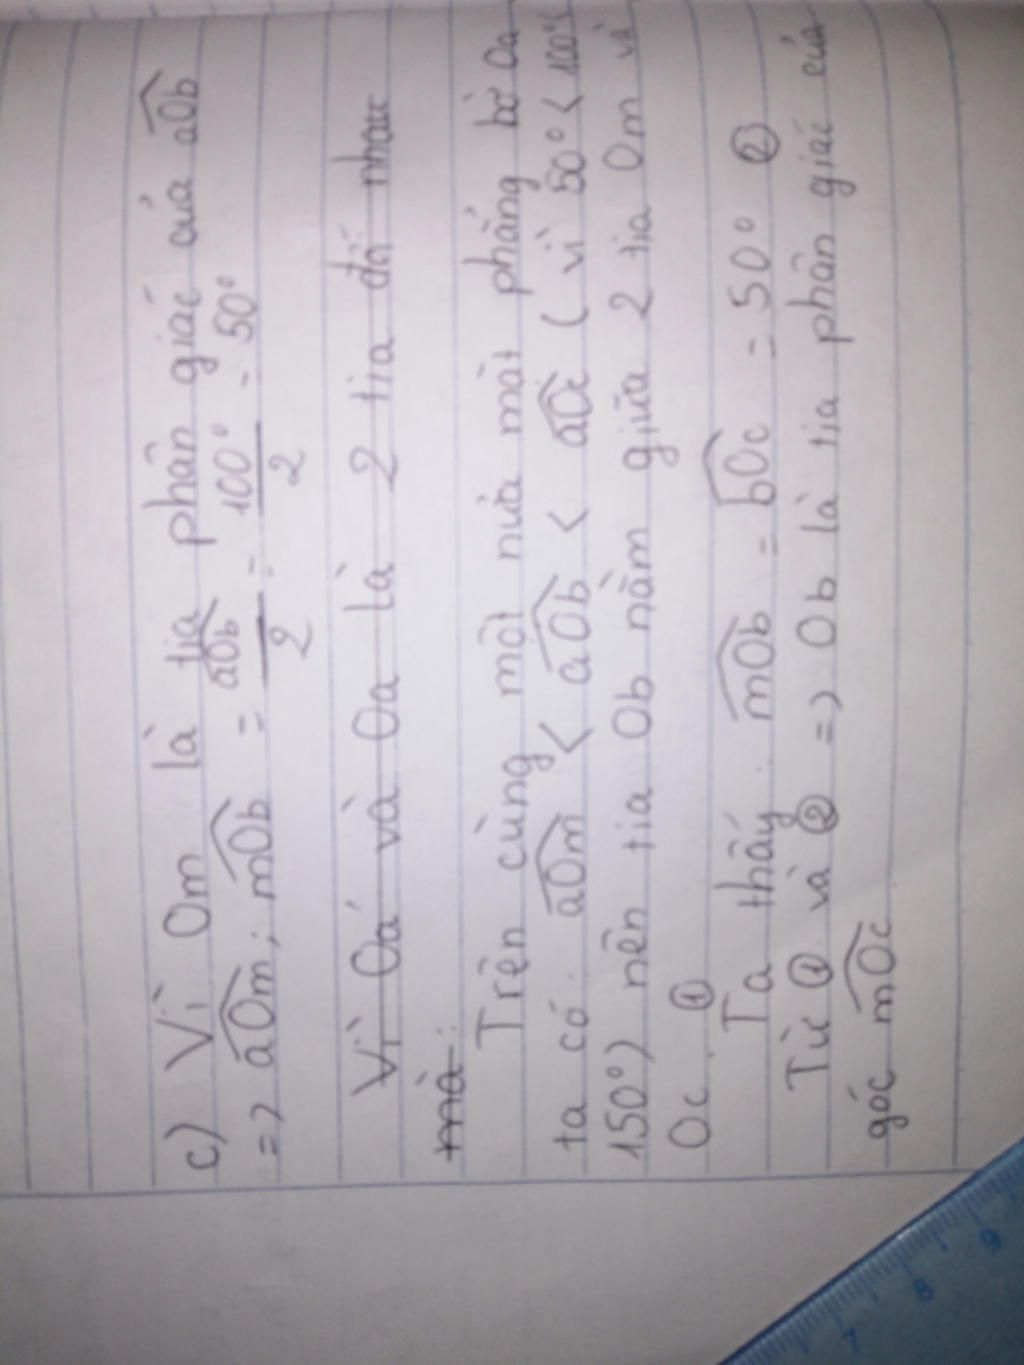 c) Vì Om là tia phân giác của aOb
=> aOm; mOb = aOb/2 = 100°/2 = 50°
Vì Oá và Oa là 2 tia đối nhau
mà:
Trên cùng một nửa mặt phẳng bờ Oa
ta có. aOm < aOb < aOc ( vì 50° < 100° <
150°) nên tia Ob nằm giữa 2 tia Om và
Oc. ①
Ta thấy. mOb = bOc = 50° ②
Từ ① và ② => Ob là tia phân giác của
góc mOc
7 8 9